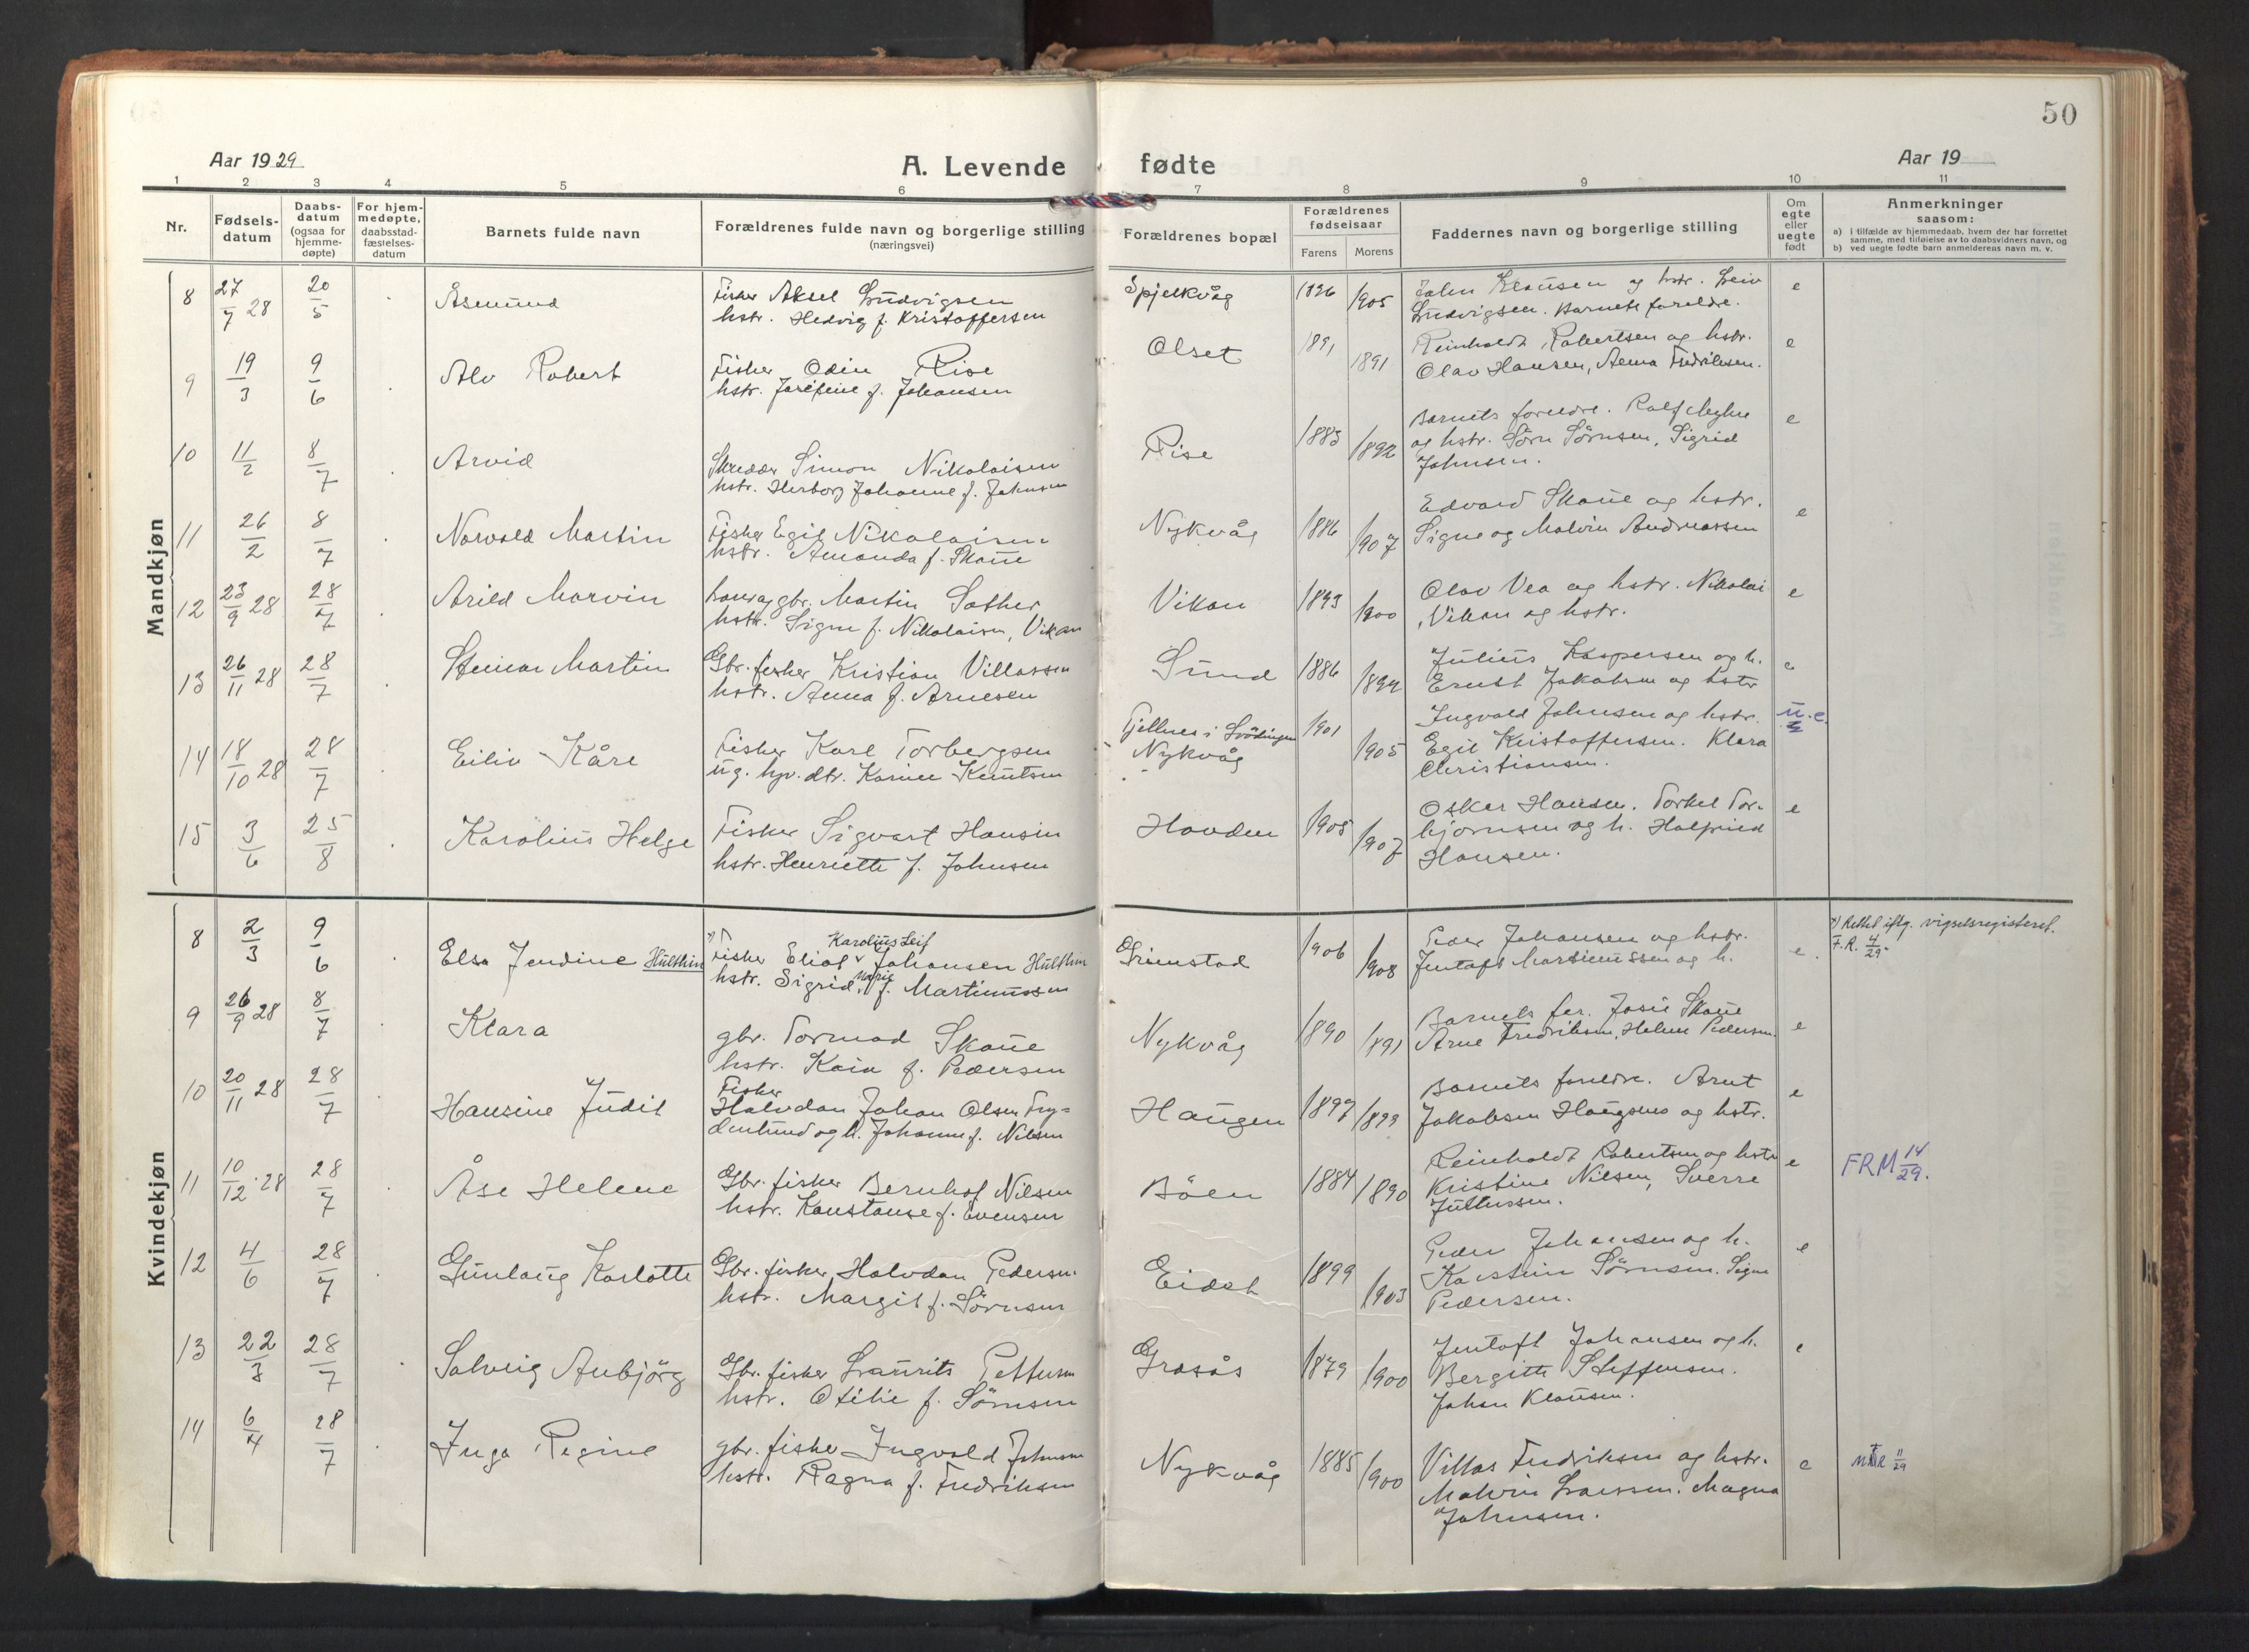 50
Aar 1929
A. Levende fødte
Aar 19
1 2 3 4 5 6 7 8 9 10 11
Nr.
Fødsels-
datum
Daabs-
datum
(ogsaa for
hjemme-
døpte)
For hjem-
medøpte,
daabsstad-
fæstelses-
datum
Barnets fulde navn
Forældrenes fulde navn og borgerlige stilling
(næringsvei)
Forældrenes bopæl
Forældrenes
fødselsaar
Farens Morens
Faddernes navn og borgerlige stilling
Om
egte
eller
uegte
født
Anmerkninger
saasom:
a) i tilfælde av hjemmedaab, hvem der har forrettet
samme, med tilføielse av to daabsvidners navn, og
b) ved uegte fødte barn anmelderens navn m. v.
Mandkjøn
8 27/7 28 20/5 Åsmund
Fisker Aksel Ludvigsen
hstr. Hedvig f. Kristoffersen
Spjelkvåg 1896 1905
John Klausen og hstr.
Ludvigsen. Barnets foreldre.
e
9 19/3 9/6 Alv Robert
Fisker Odin Rise
hstr. Josefine f. Johansen
Olset 1891 1891
Reinholdt Robertsen og hstr.
Olav Hansen, Anna Fredriksen.
e
10 11/2 8/7 Arvid
Skredder Simon Nikolaisen
hstr. Herborg Johanne f. Johnsen
Rise 1883 1892
Barnets foreldre. Rolf Myhre
og hstr. Sörn Sörnsen, Sigrid
Johnsen.
e
11 26/2 8/7 Norvald Martin
Fisker Egil Nikolaisen
hstr. Amanda f. Skaue
Nykvåg 1886 1907
Edvard Skaue og hstr.
Signe og Malvin Andreassen
e
12 23/9 28 28/7 Arild Marvin
gbr. Martin Sather
hstr. Signe f. Nikolaisen, Vikan
Vikan 1893 1900
Olav Vea og hstr. Nikolai
Vikan og hstr.
e
13 26/11 28 28/7 Steinar Martin
Gbr. fisker Kristian Villassen
hstr. Anna f. Arnesen
Sund 1886 1899
Julius Kaspersen og h.
Ernst Jakobsen og hstr
e
14 18/10 28 28/7 Eiliv Kåre
Fisker Karl Torbergsen
ug. hpr. dtr. Karine Knutsen
Fjellnes i Lödingen
Nykvåg 1901 1905
Ingvald Johnsen og hstr.
Egil Kristoffersen. Klara
Christiansen.
u.e.
15 3/6 25/8 Karolius Helge
Fisker Sigvart Hansen
hstr. Henriette f. Johnsen
Hovden 1905 1907
Oskar Hansen. Torkel Tor-
björnsen og h. Halfried
Hansen.
e
Kvindekjøn
8 2/3 9/6 Elsa Jendine Hulthin
Karolius Leif
Fisker Eliot Johansen Hulthin
hstr. Sigrid Marie f. Martinussen
Grimstad 1906 1908
Peder Johansen og hstr.
Jentoft Martinussen og h.
e
*) Rettet iflg. vigselsregisteret.
F.R. 4/29.
9 26/9 28 8/7 Klara
gbr. Tormod Skaue
hstr. Kaia f. Pedersen
Nykvåg 1890 1891
Barnets for. Josie Skaue
Arne Fredriksen, Helene Pedersen.
e
10 20/11 28 28/7 Hansine Judit
Fisker
Halvdan Johan Olsen Fry-
denlund og h. Johanne f. Nilsen
Haugen 1897 1899
Barnets foreldre. Arnt
Jakobsen Haugsnes og hstr.
e
11 10/12 28 28/7 Åse Helene
Gbr. fisker Bernhof Nilsen
hstr. Konstanse f. Evensen
Böen 1884 1890
Reinholdt Robertsen og hstr
Kristine Nilsen, Sverre
Jullussen.
e
FRM 14/29.
12 4/6 28/7 Gunlaug Karlotte
Gbr. fisker Halvdan Pedersen
hstr. Margit f. Sörnsen
Eidet 1899 1903
Peder Johansen og h.
Karstein Sörnsen. Signe
Pedersen.
e
13 22/3 28/7 Solveig Anbjörg
Gbr. fisker Laurits Pettersen
hstr. Otilie f. Sörnsen
Grosås 1879 1900
Jentoft Johansen og h.
Bergitte Steffensen.
Johan Klausen.
e
14 6/4 28/7 Inga Regine
gbr. fisker Ingvald Johnsen
hstr. Ragna f. Fredriksen
Nykvåg 1885 1900
Villas Fredriksen og hstr.
Malvin Larssen. Magna
Johnsen.
e
11/29